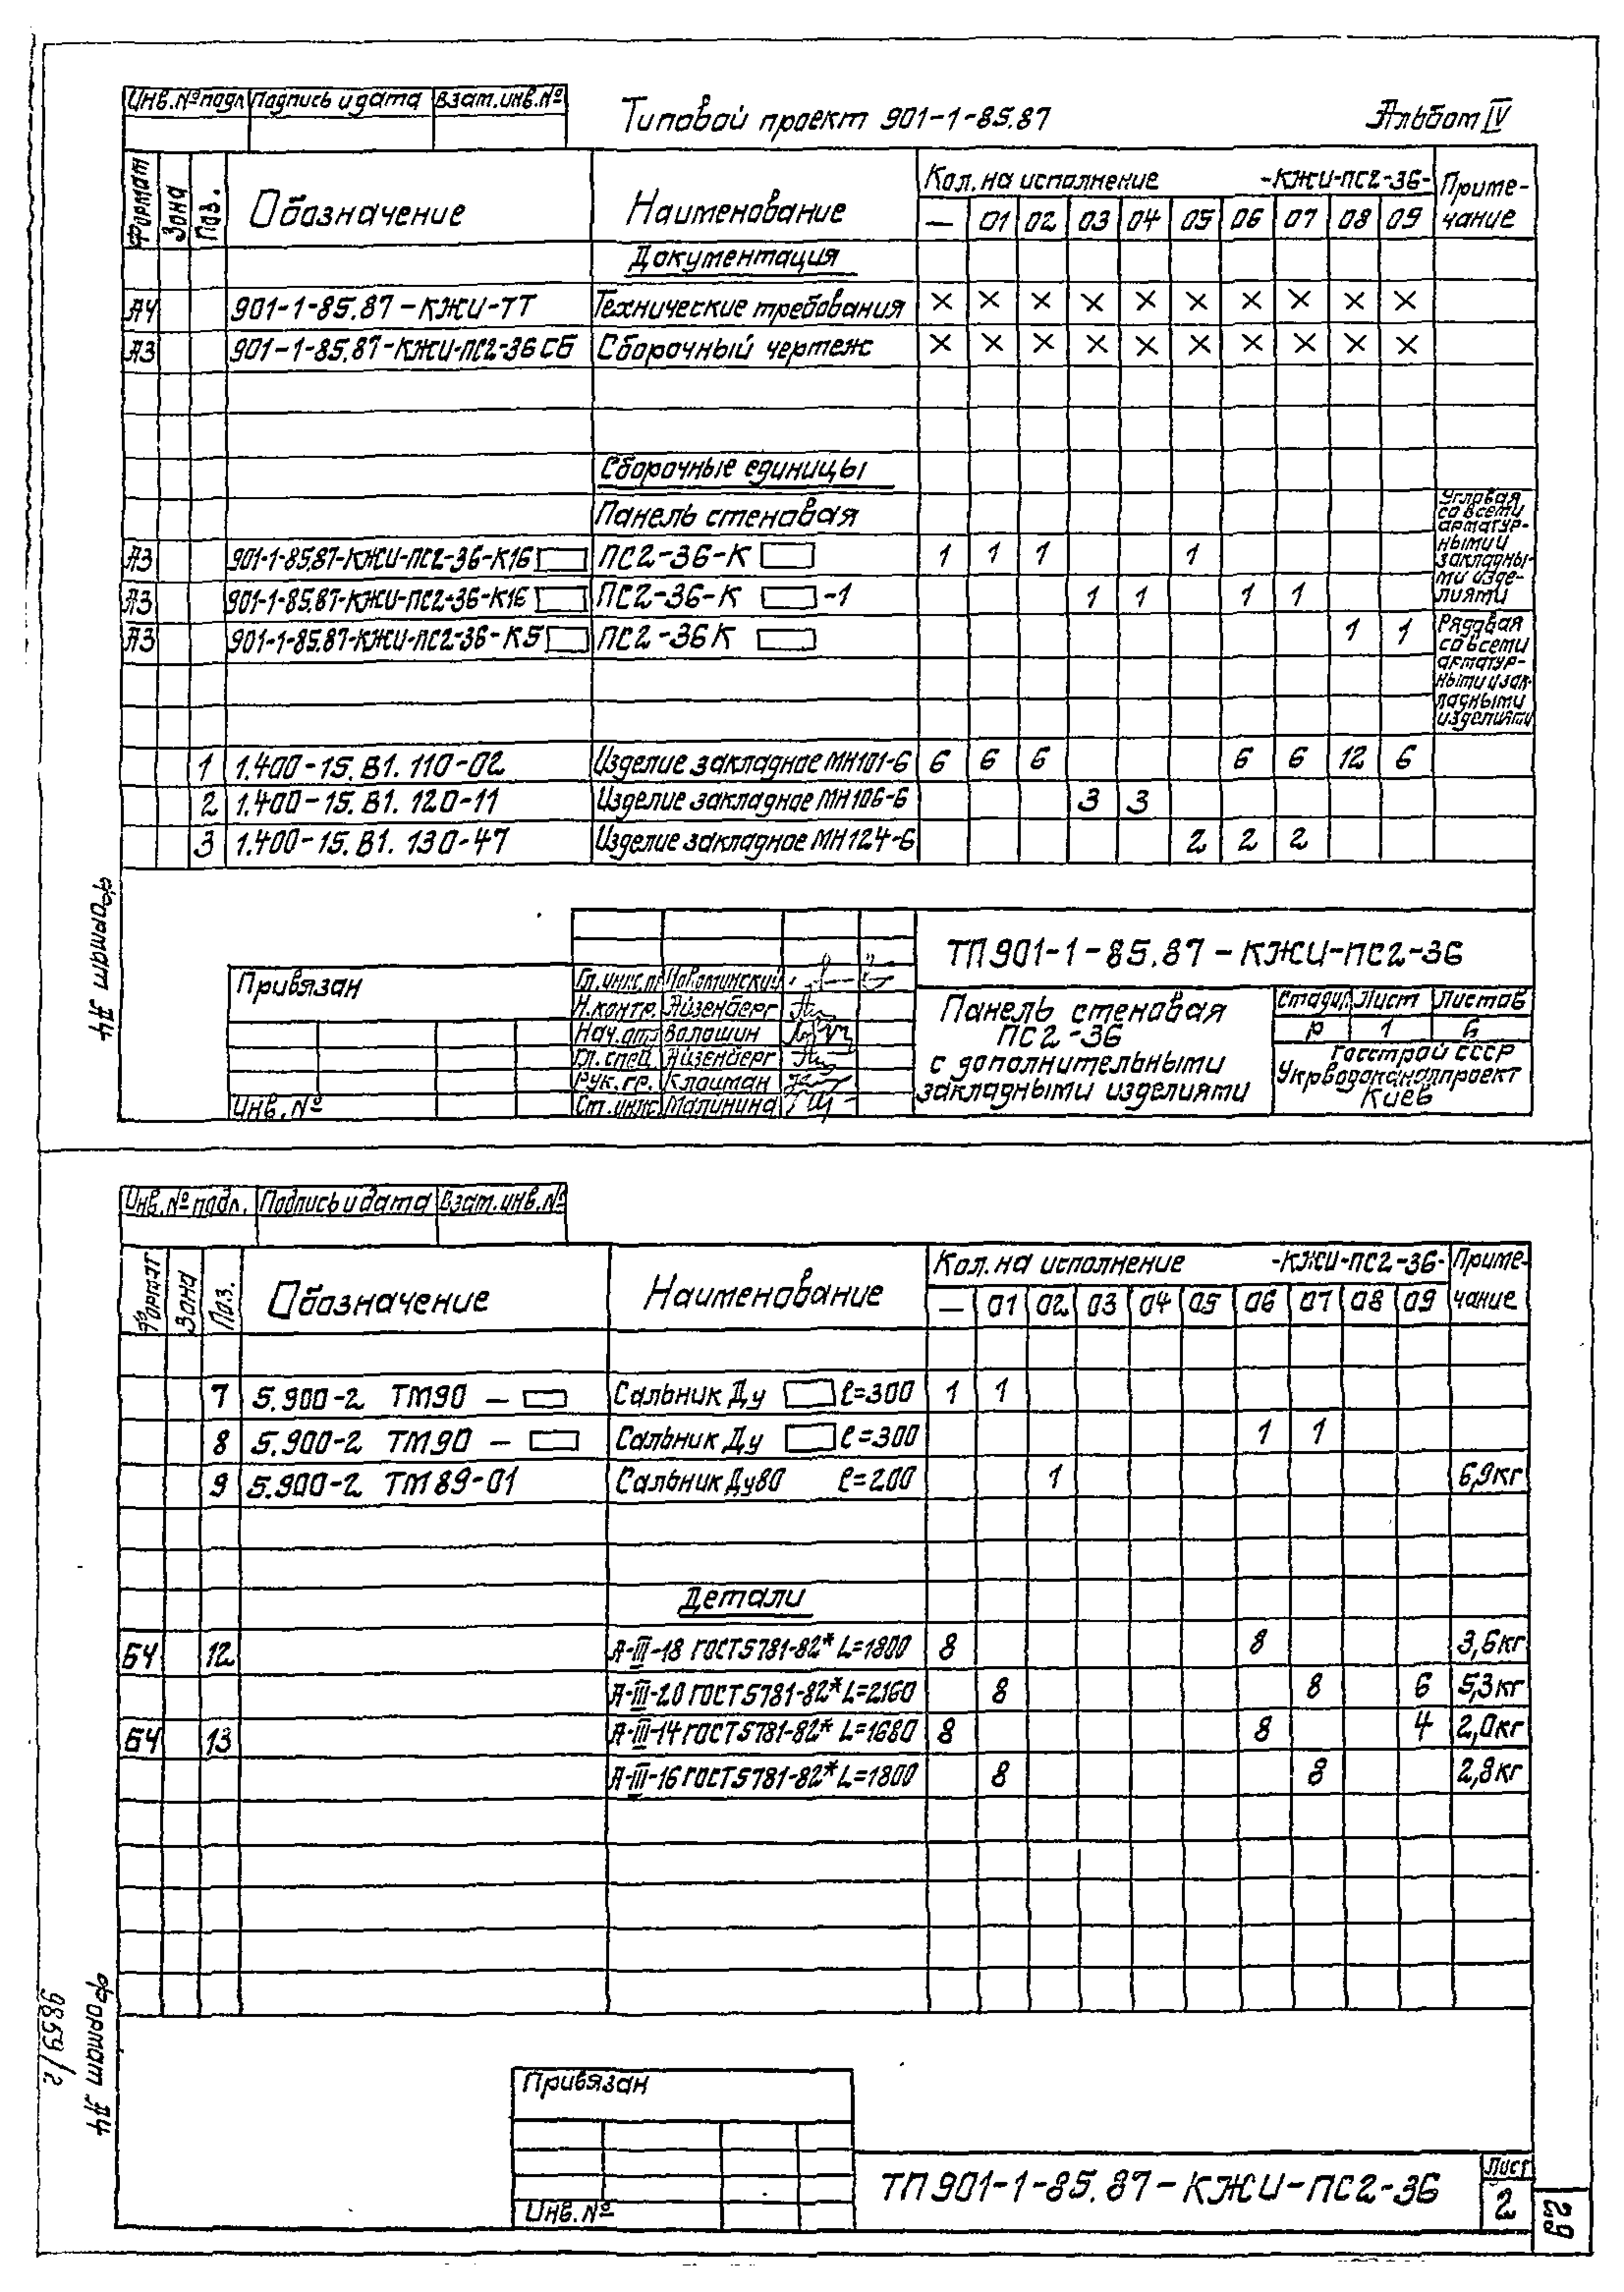 Инв.№подл Подпись и дата Взам.инв.№
Типовой проект 901-1-85.87 Альбом IV
Формат Зона Поз. Обозначение Наименование Кол. на исполнение -КЖИ-ПС2-36- Приме-
— 01 02 03 04 05 06 07 08 09 чание
Документация
А4 901-1-85.87-КЖИ-ТТ Технические требования × × × × × × × × × ×
А3 901-1-85.87-КЖИ-ПС2-36СБ Сборочный чертеж × × × × × × × × × ×
Сборочные единицы
Панель стеновая
А3 901-1-85.87-КЖИ-ПС2-36-К16 ПС2-36-К 1 1 1 1
А3 901-1-85.87-КЖИ-ПС2-36-К16 ПС2-36-К -1 1 1 1 1
А3 901-1-85.87-КЖИ-ПС2-36-К5 ПС2-36К 1 1
Угловая
со всеми
арматур-
ными и
закладны-
ми изде-
лиями
Рядовая
со всеми
арматур-
ными и зак-
ладными
изделиями
1 1.400-15.В1.110-02 Изделие закладное МН101-6 6 6 6 6 6 12 6
2 1.400-15.В1.120-11 Изделие закладное МН106-6 3 3
3 1.400-15.В1.130-47 Изделие закладное МН124-6 2 2 2
Формат А4
Привязан
Инв.№
Гл.инж.пр
Н.контр. Айзенберг
Нач.отд Волошин
Гл.спец Айзенберг
Рук.гр. Клатман
Ст.инж Малинина
ТП901-1-85.87-КЖИ-ПС2-36
Панель стеновая
ПС2-36
с дополнительными
закладными изделиями
Стадия Лист Листов
Р 1 6
Госстрой СССР
Укрводоканалпроект
Киев
Инв.№подл. Подпись и дата Взам.инв.№
Формат Зона Поз. Обозначение Наименование Кол. на исполнение -КЖИ-ПС2-36- Приме-
— 01 02 03 04 05 06 07 08 09 чание
7 5.900-2 ТМ90 — Сальник Ду ℓ=300 1 1
8 5.900-2 ТМ90 — Сальник Ду ℓ=300 1 1
9 5.900-2 ТМ89-01 Сальник Ду80 ℓ=200 1 6,9кг
Детали
БЧ 12 А-III-18 ГОСТ5781-82* L=1800 8 8 3,6кг
А-III-20 ГОСТ5781-82* L=2160 8 8 6 5,3кг
БЧ 13 А-III-14 ГОСТ5781-82* L=1680 8 8 4 2,0кг
А-III-16 ГОСТ5781-82* L=1800 8 8 2,8кг
Формат А4
9859/2
Привязан
Инв.№
ТП901-1-85.87-КЖИ-ПС2-36
Лист
2
29